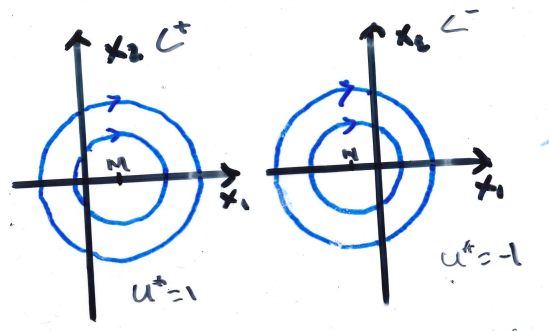 x₂ L⁺
M
x₁
u* = 1
x₂ L⁻
N
x₁
u* = -1